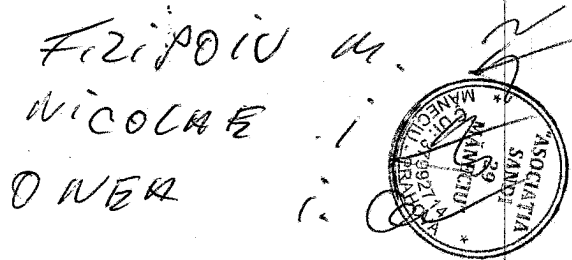 FiliPOIU M.
NicOLAE .i
ONEA i.
"ASOCIATIA
SANDI
39
MĂNECIU"
MĂNECIU - PRAHOVA